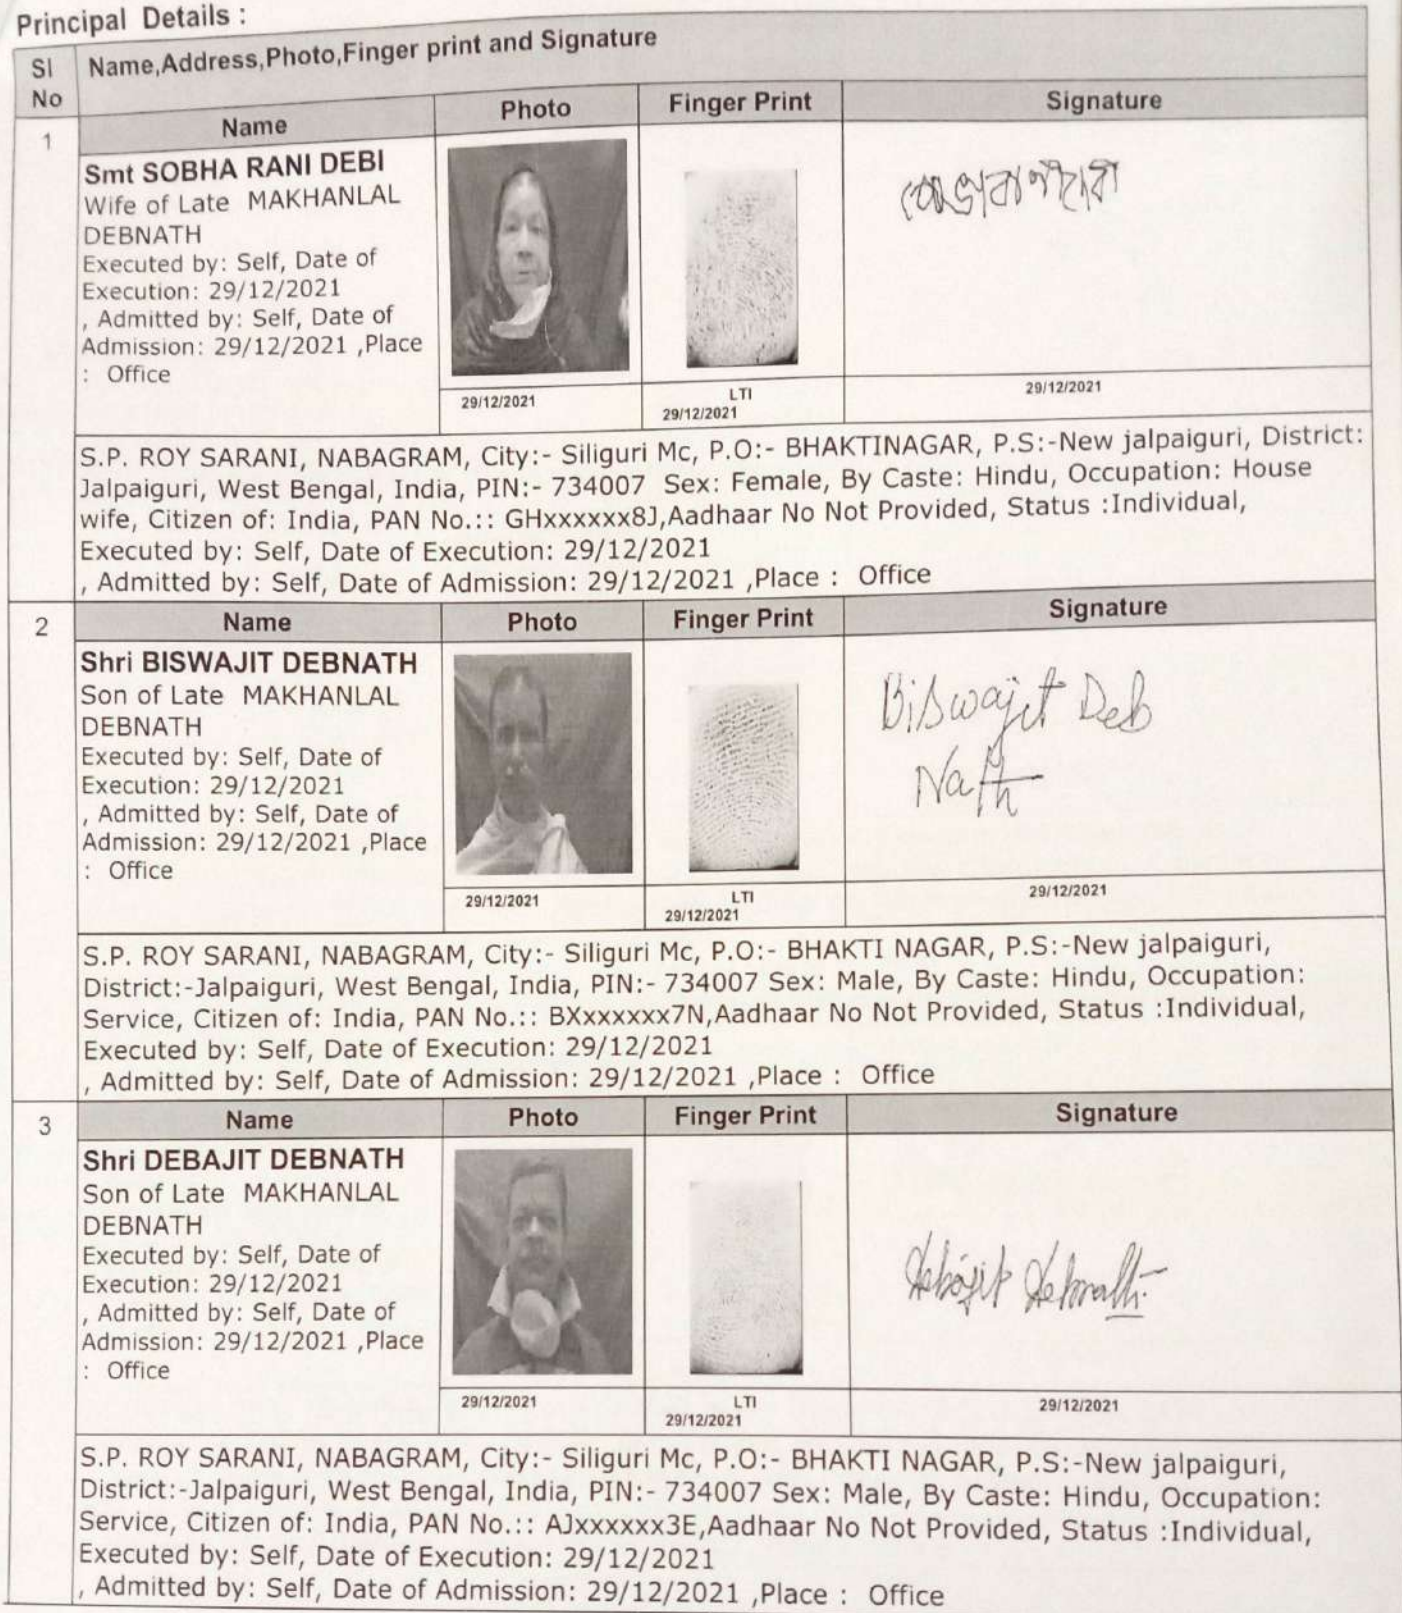 Principal Details :
Sl No
Name,Address,Photo,Finger print and Signature
1
Name
Photo
Finger Print
Signature
Smt SOBHA RANI DEBI
Wife of Late MAKHANLAL
DEBNATH
Executed by: Self, Date of
Execution: 29/12/2021
, Admitted by: Self, Date of
Admission: 29/12/2021 ,Place
: Office
29/12/2021
LTI
29/12/2021
29/12/2021
S.P. ROY SARANI, NABAGRAM, City:- Siliguri Mc, P.O:- BHAKTINAGAR, P.S:-New jalpaiguri, District:
Jalpaiguri, West Bengal, India, PIN:- 734007 Sex: Female, By Caste: Hindu, Occupation: House
wife, Citizen of: India, PAN No.:: GHxxxxxx8J,Aadhaar No Not Provided, Status :Individual,
Executed by: Self, Date of Execution: 29/12/2021
, Admitted by: Self, Date of Admission: 29/12/2021 ,Place : Office
2
Name
Photo
Finger Print
Signature
Shri BISWAJIT DEBNATH
Son of Late MAKHANLAL
DEBNATH
Executed by: Self, Date of
Execution: 29/12/2021
, Admitted by: Self, Date of
Admission: 29/12/2021 ,Place
: Office
Biswajit Deb
Nath
29/12/2021
LTI
29/12/2021
29/12/2021
S.P. ROY SARANI, NABAGRAM, City:- Siliguri Mc, P.O:- BHAKTI NAGAR, P.S:-New jalpaiguri,
District:-Jalpaiguri, West Bengal, India, PIN:- 734007 Sex: Male, By Caste: Hindu, Occupation:
Service, Citizen of: India, PAN No.:: BXxxxxxx7N,Aadhaar No Not Provided, Status :Individual,
Executed by: Self, Date of Execution: 29/12/2021
, Admitted by: Self, Date of Admission: 29/12/2021 ,Place : Office
3
Name
Photo
Finger Print
Signature
Shri DEBAJIT DEBNATH
Son of Late MAKHANLAL
DEBNATH
Executed by: Self, Date of
Execution: 29/12/2021
, Admitted by: Self, Date of
Admission: 29/12/2021 ,Place
: Office
Debajit Debnath
29/12/2021
LTI
29/12/2021
29/12/2021
S.P. ROY SARANI, NABAGRAM, City:- Siliguri Mc, P.O:- BHAKTI NAGAR, P.S:-New jalpaiguri,
District:-Jalpaiguri, West Bengal, India, PIN:- 734007 Sex: Male, By Caste: Hindu, Occupation:
Service, Citizen of: India, PAN No.:: AJxxxxxx3E,Aadhaar No Not Provided, Status :Individual,
Executed by: Self, Date of Execution: 29/12/2021
, Admitted by: Self, Date of Admission: 29/12/2021 ,Place : Office